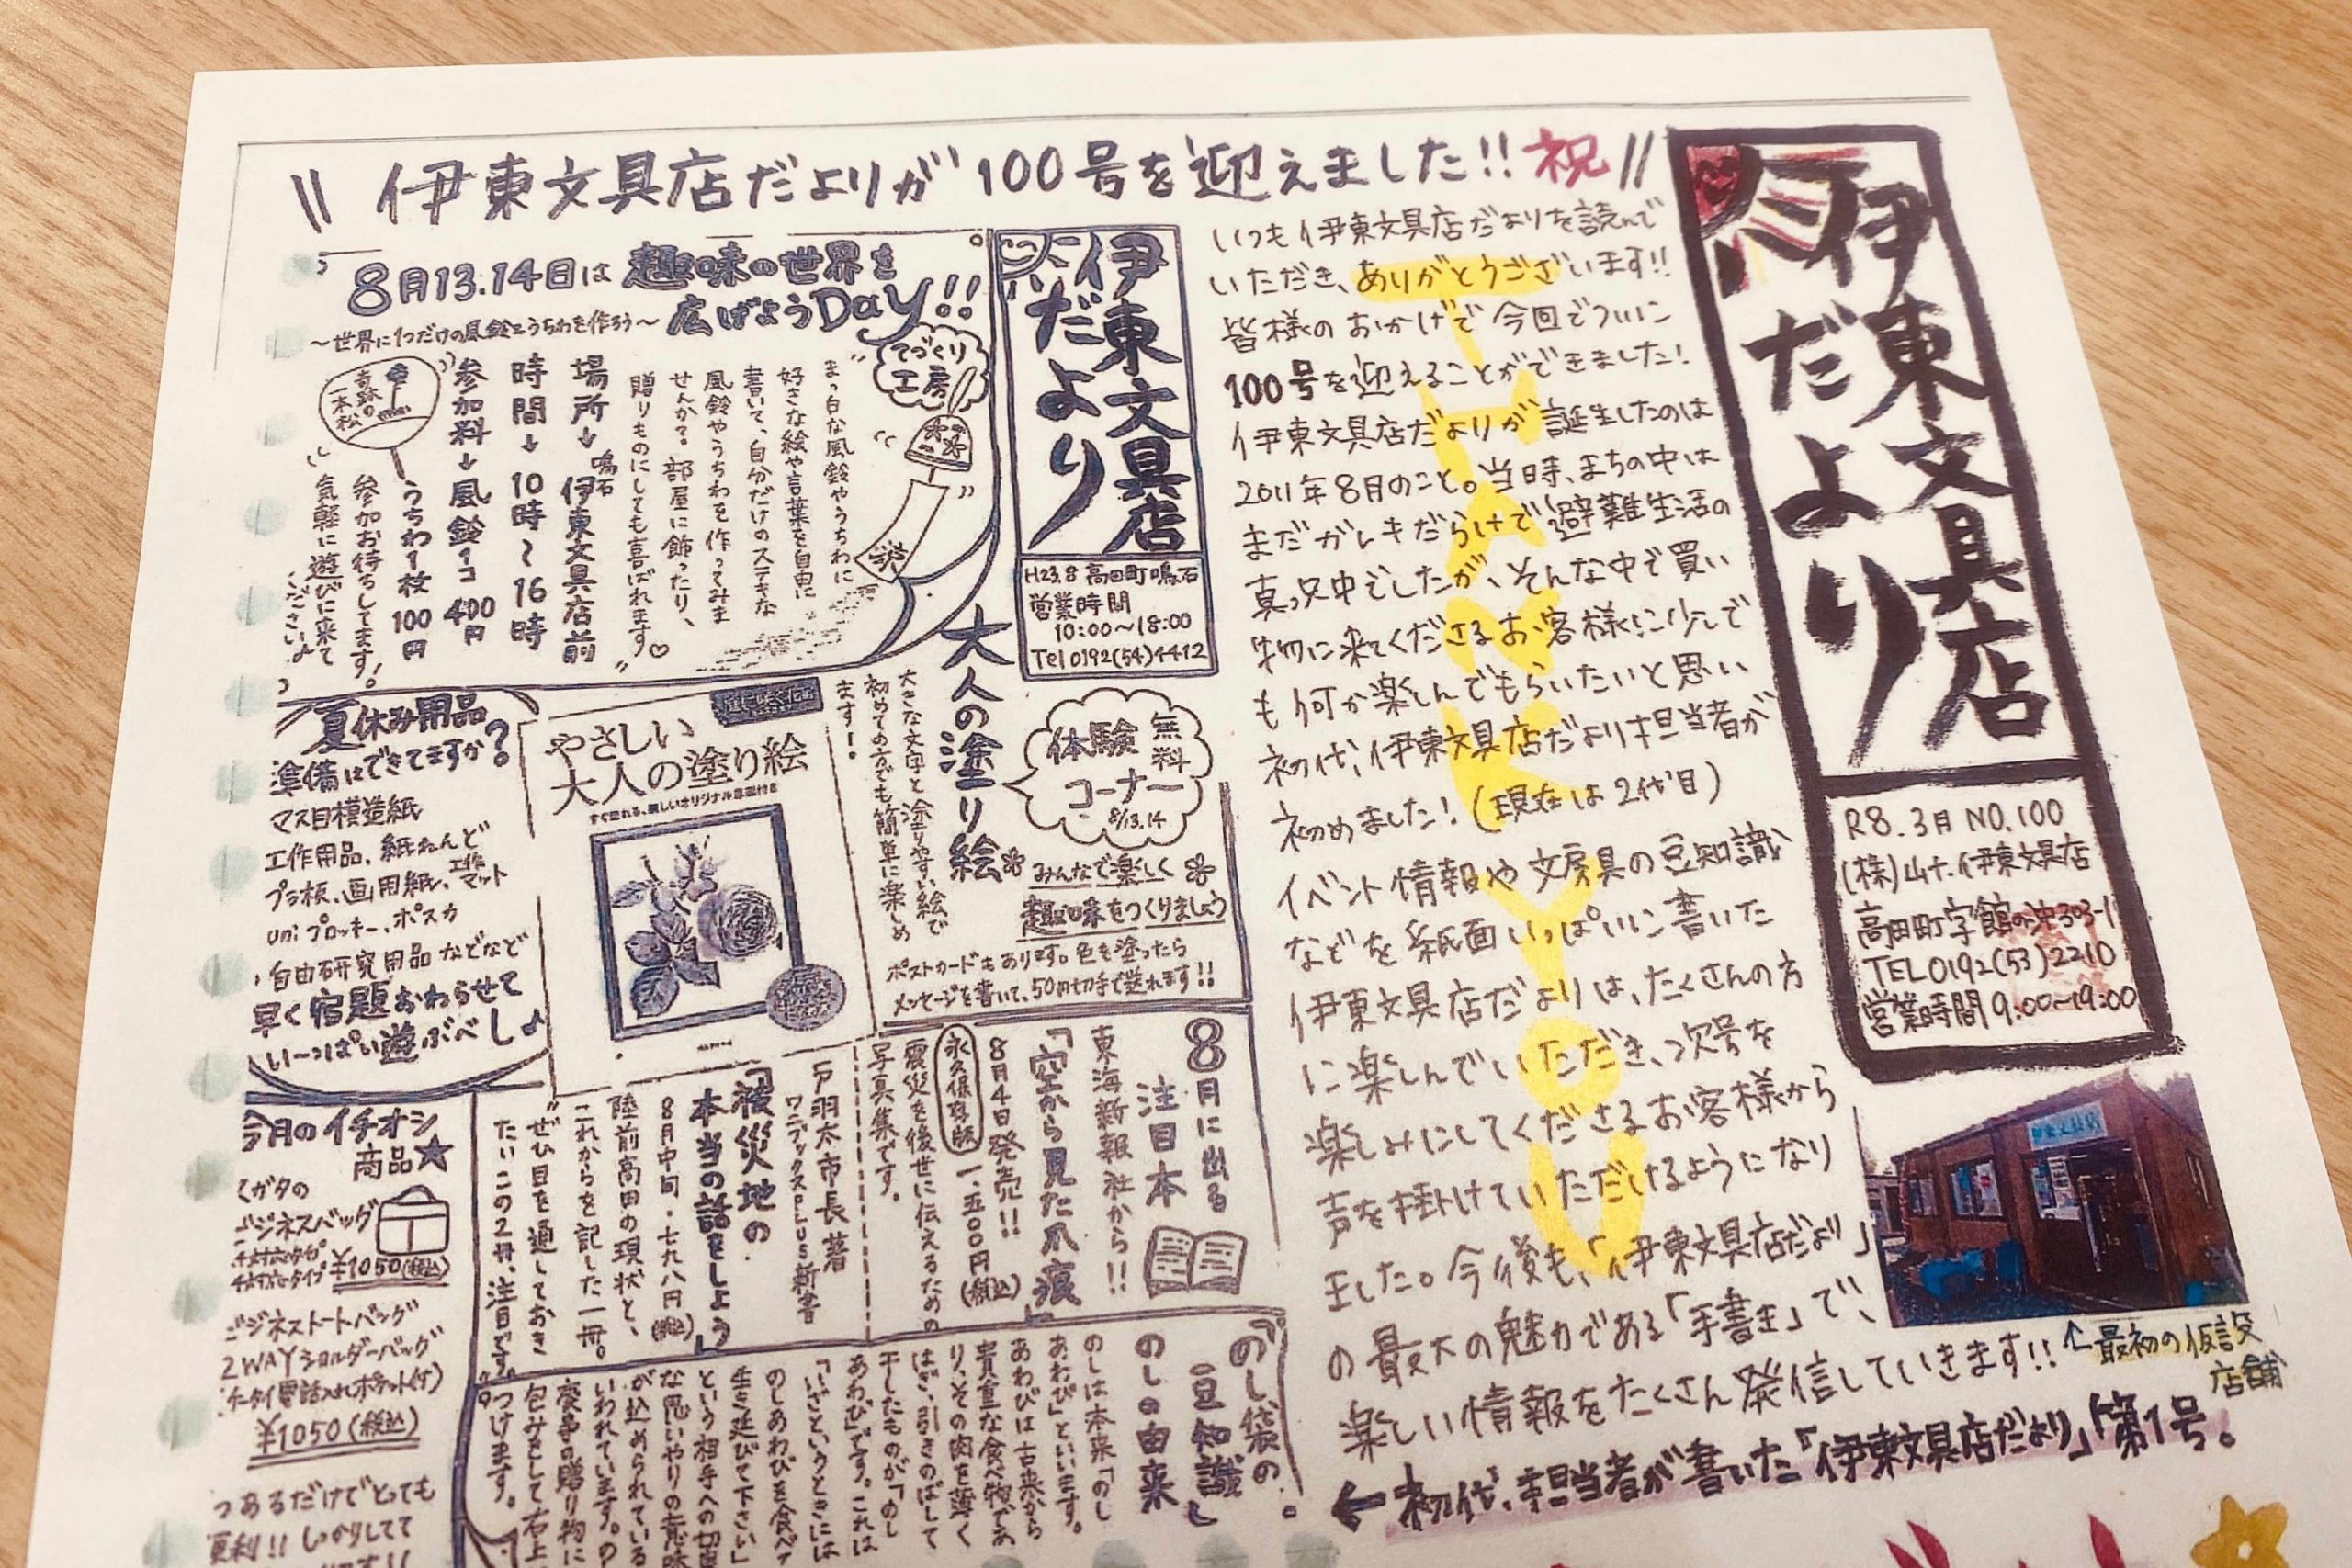 \\ 伊東文具店だよりが100号を迎えました!! 祝 //
伊東文具店
だより
R8.3月 NO.100
(株)山十 伊東文具店
高田町字館の沖303-1
TEL 0192(53)2210
営業時間 9:00~19:00
いつも伊東文具店だよりを読んで
いただき、ありがとうございます!!
皆様のおかげで今回でついに
100号を迎えることができました!
伊東文具店だよりが誕生したのは
2011年8月のこと。当時、まちの中は
まだガレキだらけで避難生活の
真っ只中でしたが、そんな中で買い
物に来てくださるお客様に少しで
も何か楽しんでもらいたいと思い
初代、伊東文具店だより担当者が
初めました!(現在は2代目)
イベント情報や文房具の豆知識
などを紙面いっぱいに書いた
伊東文具店だよりは、たくさんの方
に楽しんでいただき、次号を
楽しみにしてくださるお客様から
声を掛けていただけるようになり
ました。今後も、「伊東文具店だより」
の最大の魅力である「手書き」で、
楽しい情報をたくさん発信していきます!!
THANK YOU
↑最初の仮設
店舗
←初代、担当者が書いた「伊東文具店だより」第1号。
伊東文具店
だより
H23.8 高田町鳴石
営業時間
10:00~18:00
Tel 0192(54)4412
8月13.14日は趣味の世界を
広げようDay!!
~世界に1つだけの風鈴とうちわを作ろう~
てづくり
工房
まっ白な風鈴やうちわに
好きな絵や言葉を自由に
書いて、自分だけのステキな
風鈴やうちわを作ってみま
せんか?部屋に飾ったり、
贈りものにしても喜ばれます♡
場所→鳴石 伊東文具店前
時間→10時~16時
参加料→風鈴1コ 400円
うちわ1枚 100円
奇跡の
一本松
参加お待ちしてます!
気軽に遊びに来て
くださいっ♪
大人の塗り絵
大きな文字と塗りやすい絵で
初めての方でも簡単に楽しめ
ます!
無料
体験
コーナー
8/13.14
みんなで楽しく
趣味をつくりましょう
ポストカードもあります。色を塗ったら
メッセージを書いて、50円切手で送れます!!
やさしい
大人の塗り絵
夏休み用品
準備はできてますか?
マス目模造紙
工作用品、紙ねんど
プラ板、画用紙、工作マット
uni プロッキー、ポスカ
自由研究用品 などなど
早く宿題おわらせて
い~っぱい遊ぶべし♪
8月に出る
注目本
東海新報社から!!
「空から見た爪痕」
8月4日発売!!
永久保存版 一、五〇〇円(税込)
震災を後世に伝えるための
写真集です。
戸羽太市長著
ワニブックスPLUS新書
「被災地の
本当の話をしよう」
8月中旬・七九八円(税込)
陸前高田の現状と、
これからを記した一冊。
ぜひ目を通しておき
たいこの2冊、注目です。
今月のイチオシ
商品★
ビジネスバッグ
¥1050(税込)
ビジネストートバッグ
2WAYショルダーバッグ
ケータイ電話入れポケット付)
¥1050(税込)
つあるだけでとっても
便利!! しっかりしてて
のし袋の
「豆知識」
のしの由来
のしは本来「のし
あわび」といいます。
あわびは古来から
貴重な食べ物であ
り、その肉を薄く
はぎ、引きのばして
干したものが「のし
あわび」です。これは
「いざというときには
のしあわびを食べて
生き延びて下さい」
という相手への切実
な思いやりの意味
が込められていると
いわれています。の
包みをして右上
つけます。